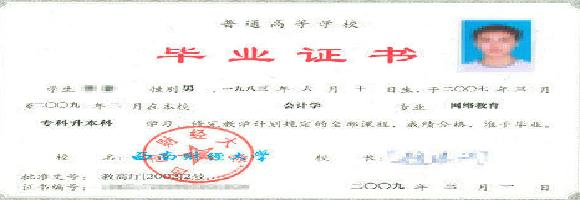 普通高等学校
毕业证书
学生 性别 男，一九八三年 八 月 十 日生，于二〇〇七年 三 月
至二〇〇九年 二 月在本校 会计学 专业 网络教育
专科升本科 学习，修完教学计划规定的全部课程，成绩合格，准予毕业。
校 名：西南财经大学 校 长：
批准文号：教高厅[2002]2号
证书编号：
二〇〇九年 三 月 一 日